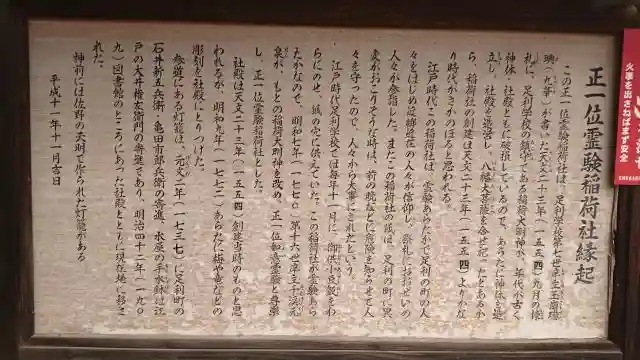 正一位霊験稲荷社縁起
この正一位霊験稲荷社は、足利学校第七世庠主玉崗瑞
璵(九華)が書いた天文二十三年(一五五四)九月の棟
札に、足利学校の鎮守である稲荷大明神が、年代が古く
神体、社殿ともに破損しているので、あらたに神体を造
立し、社殿を造営し、八幡大菩薩を合せ記ったとあるか
ら、稲荷社の創建は天文二十三年(一五五四)よりかな
り時代がさかのぼると思われる。
江戸時代、この稲荷社は、霊験あらたかで足利の町の人
々をはじめ設
近在の人々が信仰し、祭礼にはおおぜいの
人々が参詣した。またこの稲荷社の狐は、足利の町に異
変がおこりそうな時は、前の晩などに危険を知らせて人
々を守ったので、人々から大事にされたという。
江戸時代足利学校では毎年十一月に、御供小豆飯をわ
らにのせ、狐の穴に供えていた。この稲荷社が霊験あら
たかなので、明和七年(一七七〇)第十六世庠主千渓元
泉が、もとの稲荷大明神を改め、正一位如意霊験と尊崇
し、正一位霊験稲荷社とした。
社殿は天文二十三年(一五五四)創建当時のものと思
われるが、明和九年(一七七二)あらたに梅や竜などの
彫刻を社殿にとりつけた。
参道にある灯籠は、元文二年(一七三七)に足利町の
石井新五兵衛、亀田市郎兵衛の寄進、水屋の手水鉢は江
戸の大井権左衛門の寄進であり、明治四十二年(一九〇
九)図書館のところにあった社殿とともに現在地に移さ
れた。
神前には佐野の天明で作られた灯籠がある
平成十一年十一月吉日
火事を出さねばまず安全